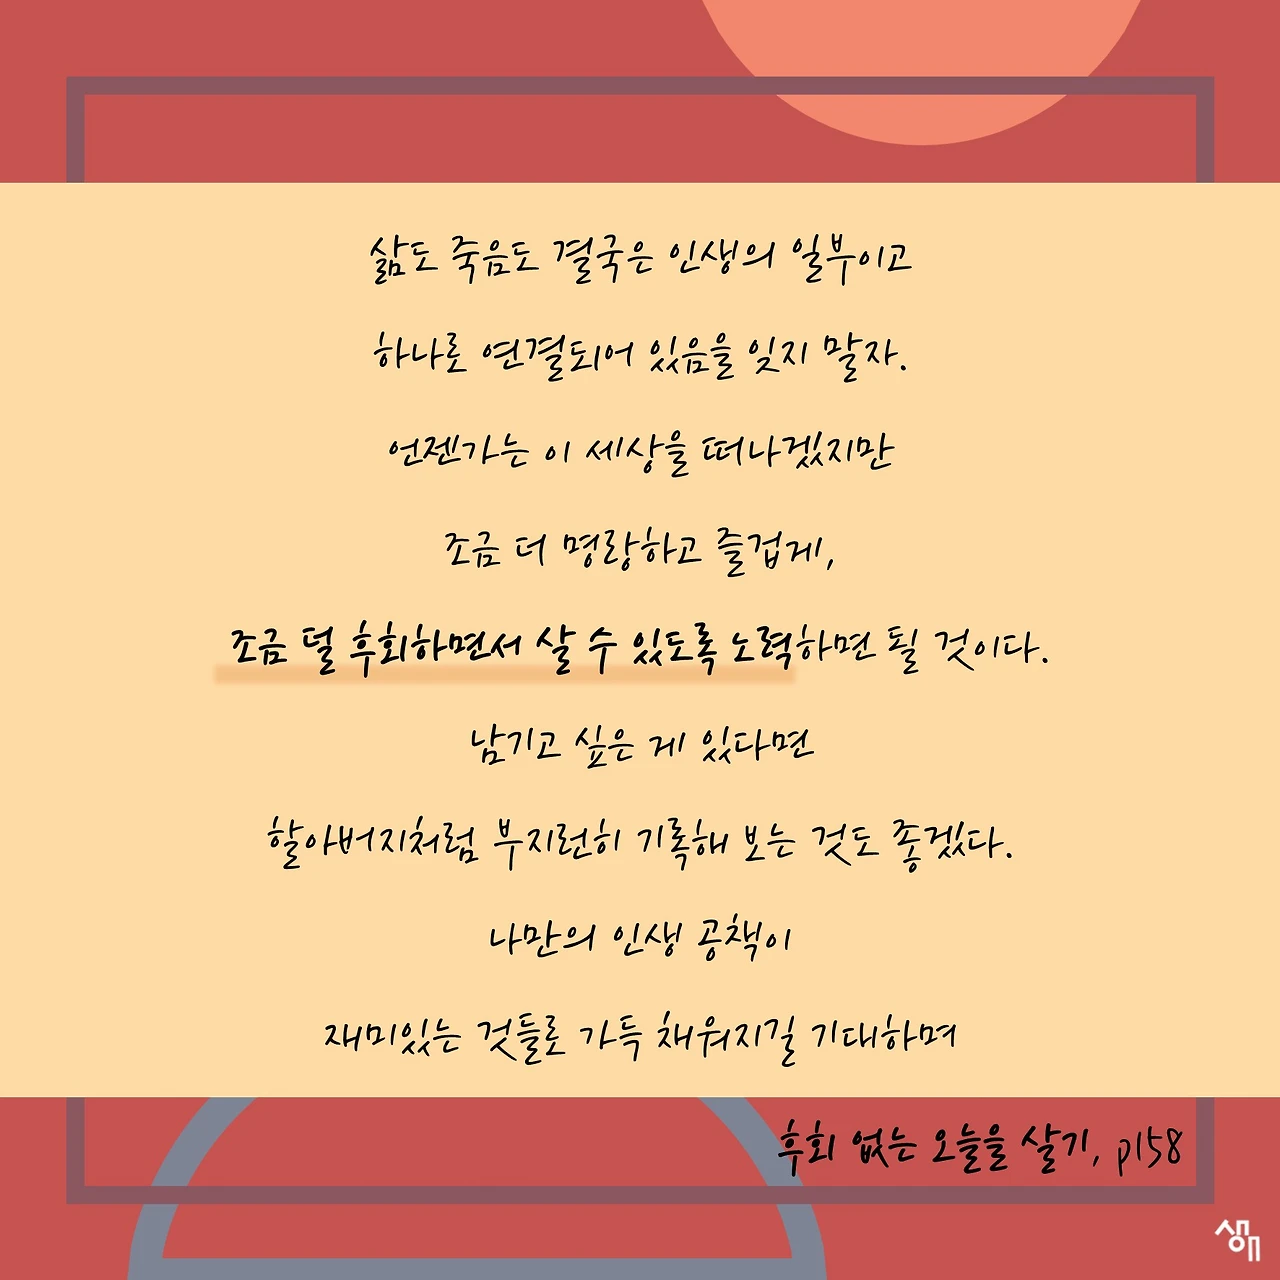 삶도 죽음도 결국은 인생의 일부이고
하나로 연결되어 있음을 잊지 말자.
언젠가는 이 세상을 떠나겠지만
조금 더 명랑하고 즐겁게,
조금 덜 후회하면서 살 수 있도록 노력하면 될 것이다.
남기고 싶은 게 있다면
할아버지처럼 부지런히 기록해 보는 것도 좋겠다.
나만의 인생 공책이
재미있는 것들로 가득 채워지길 기대하며
후회 없는 오늘을 살기, p158
생애